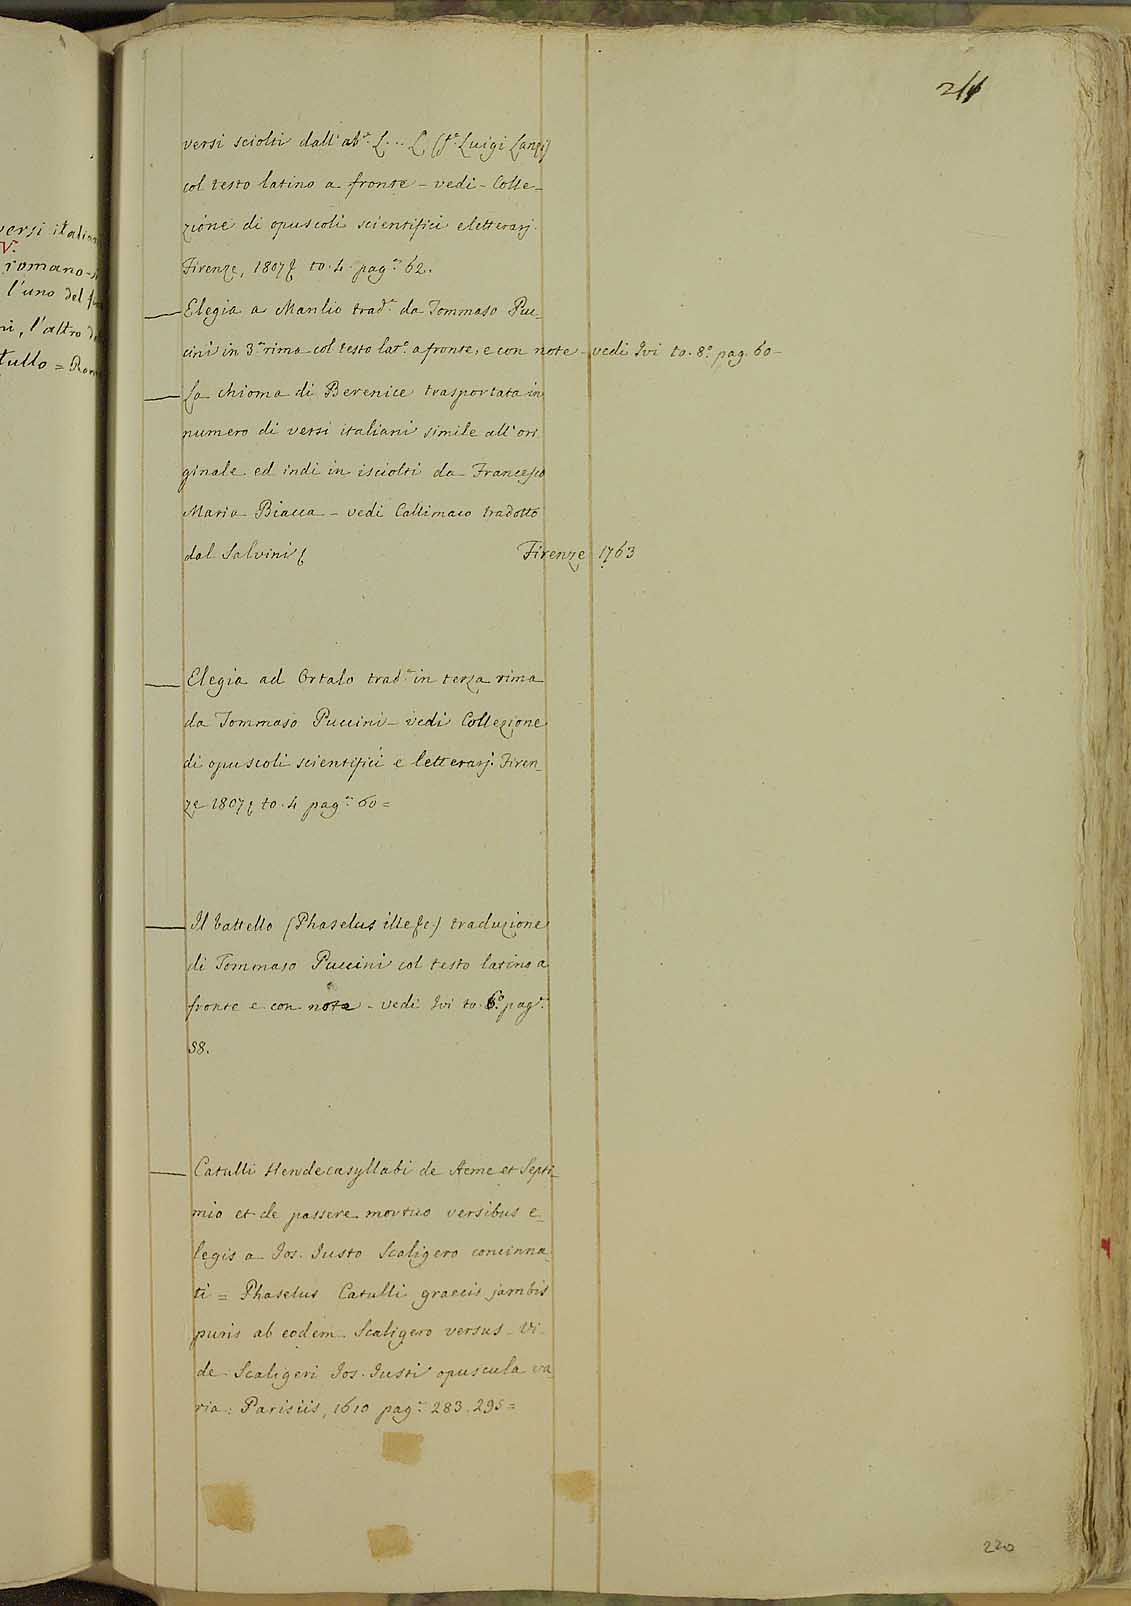 211
versi sciolti dall'ab.e L... L. (f.e Luigi Lanzi)
col testo latino a fronte - vedi - Colle-
zione di opuscoli scientifici e letterarj.
Firenze, 1807 to. 4. pag.a 62.
Elegia a Manlio trad.a da Tommaso Puc-
cini in 3.a rima col testo lat.o a fronte, e con note - vedi Ivi to. 8.o pag. 60 -
La chioma di Berenice trasportata in
numero di versi italiani simile all'ori
ginale ed indi in isciolti da Francesco
Maria Biacca - vedi Callimaco tradotto
dal Salvini Firenze 1763
Elegia ad Ortalo trad.a in terza rima
da Tommaso Puccini - vedi Collezione
di opuscoli scientifici e letterarj. Firen-
ze 1807 to. 4 pag.a 60 =
Il battello (Phaselus ille &c.) traduzione
di Tommaso Puccini col testo latino a
fronte e con note - vedi Ivi to. 6.o pag.a
58.
Catulli Hendecasyllabi de Acme et Septi-
mio et de passere mortuo versibus e-
legis a Jos. Justo Scaligero concinna-
ti = Phaselus Catulli graecis jambis
puris ab eodem Scaligero versus - Vi-
de Scaligeri Jos. Justi opuscula va
ria: Parisiis, 1610 pag.a 283. 295 =
220
versi italia
V.
romano-
l'uno del
ni, l'altro
tullo = Rom